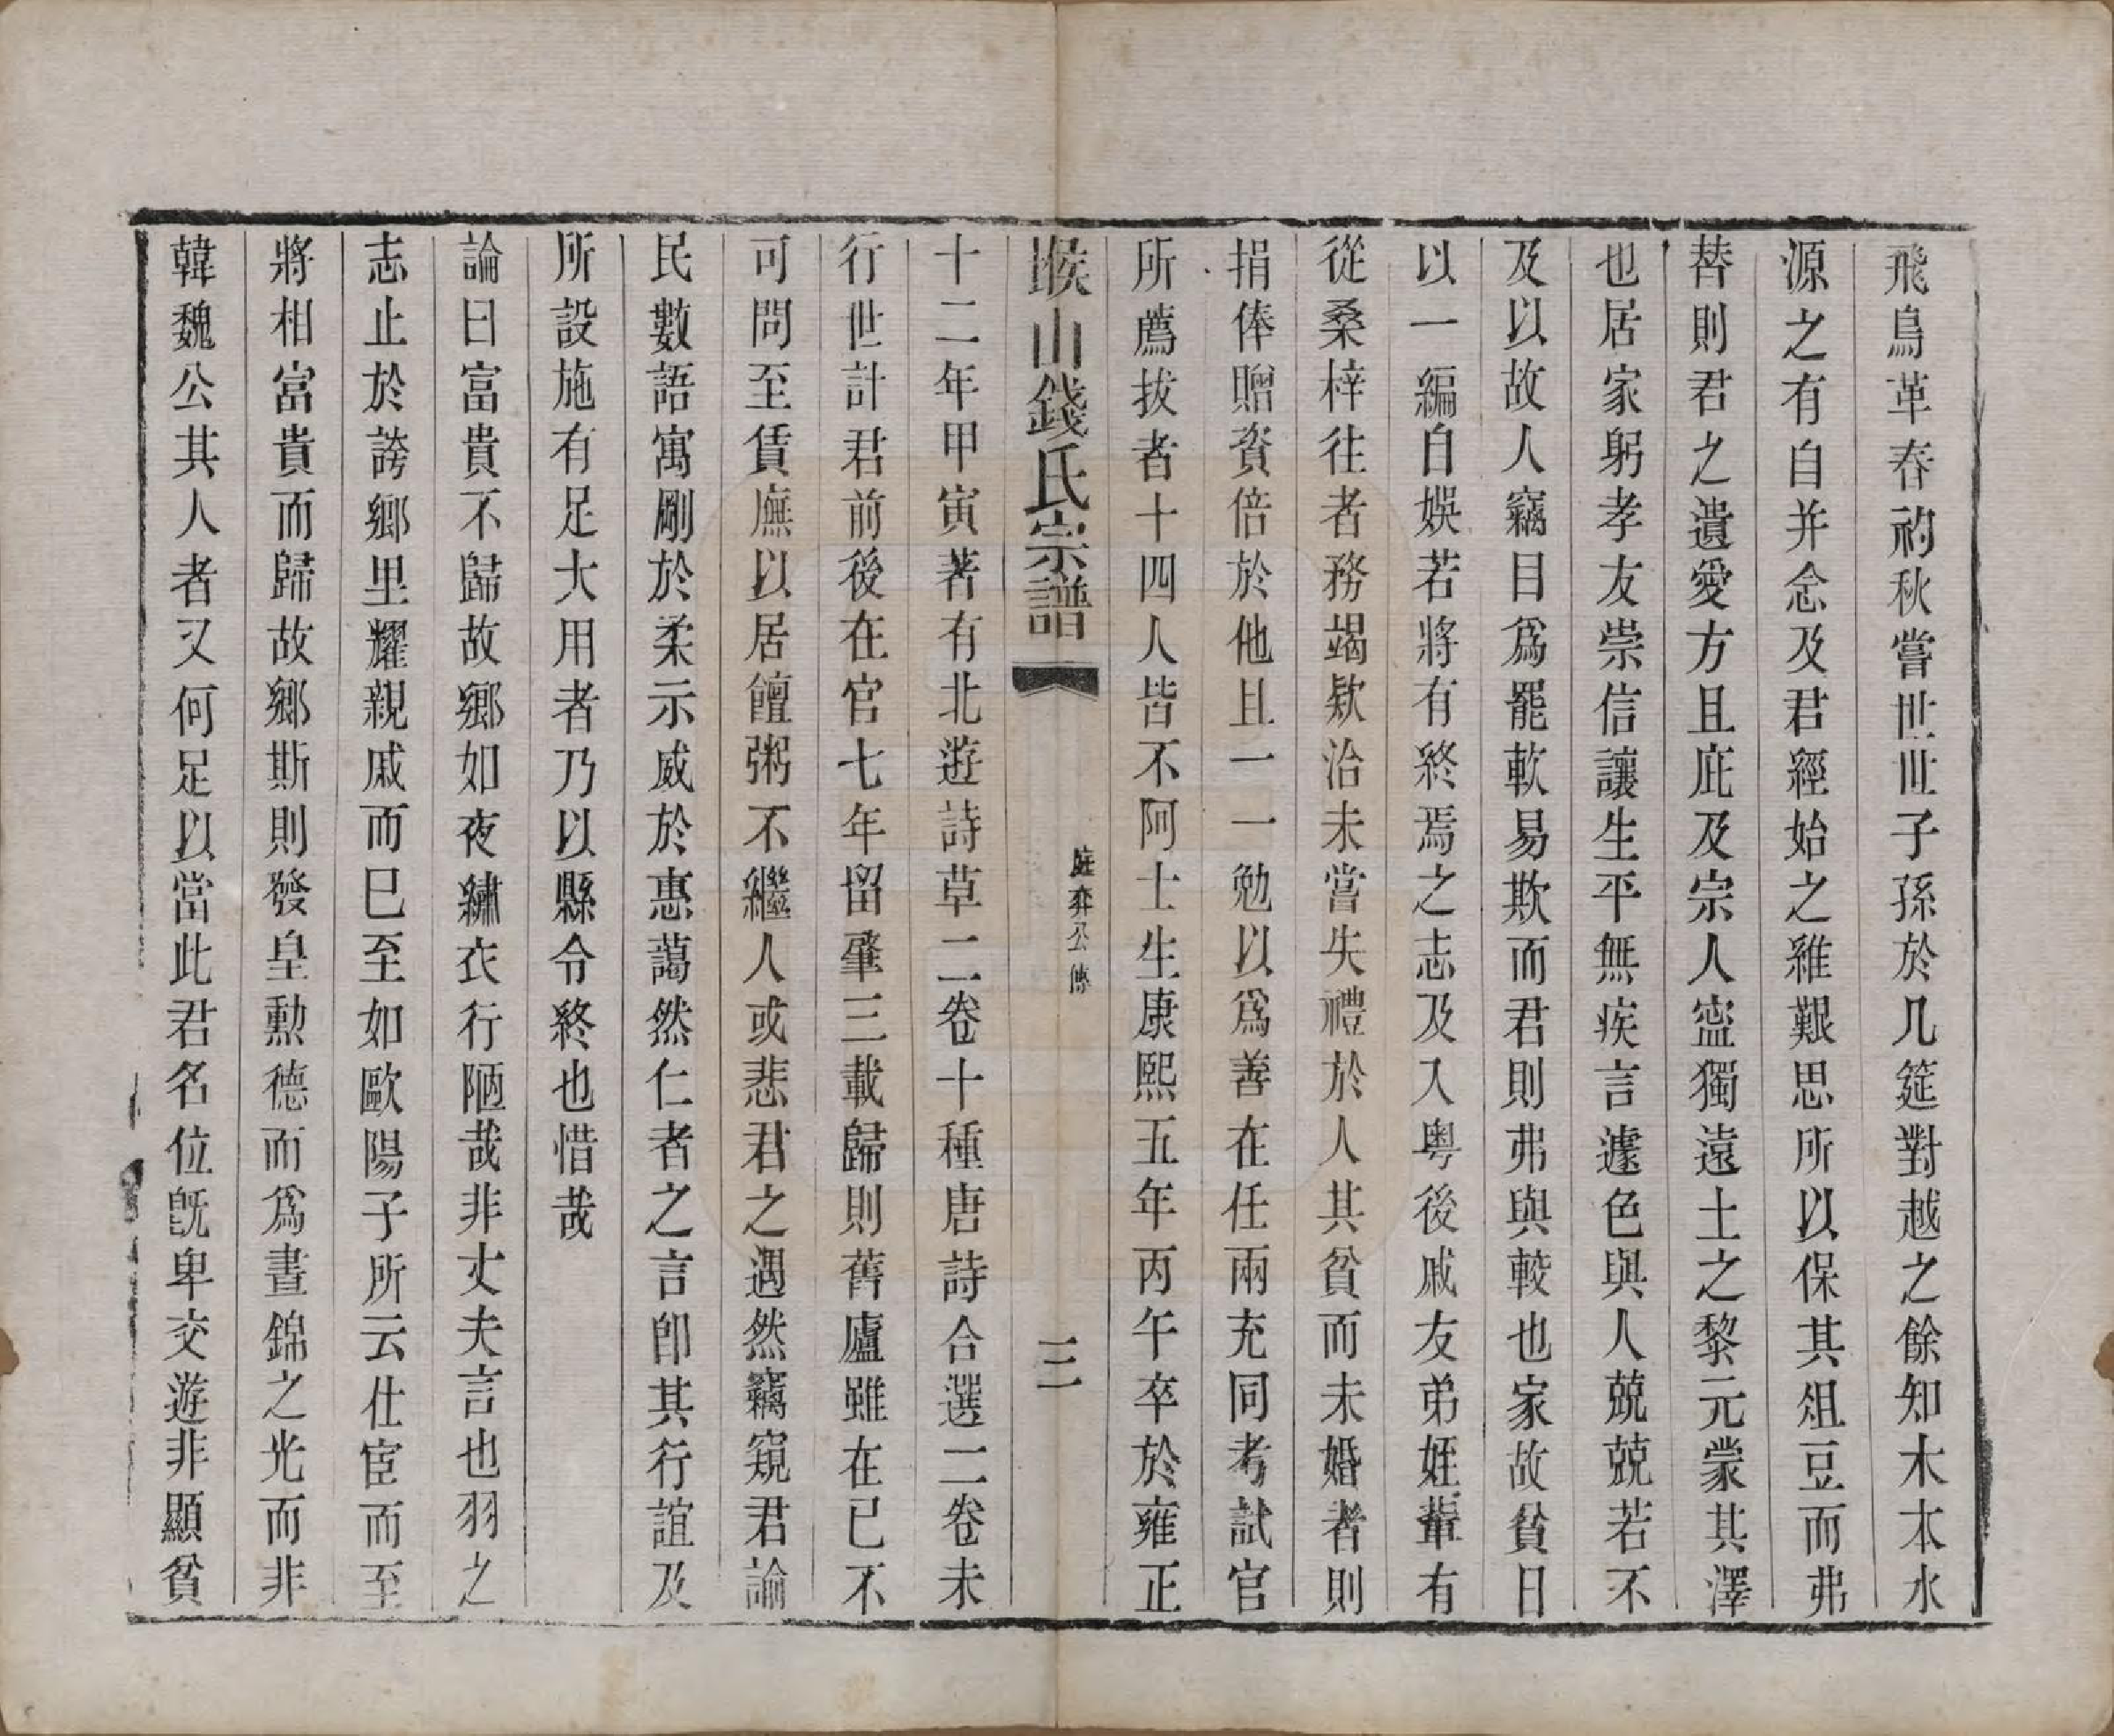 飛鳥革春礿秋嘗世世子孫於几筵對越之餘知木本水
源之有自并念及君經始之維艱思所以保其俎豆而弗
替則君之遺愛方且庇及宗人寍獨遠土之黎元蒙其澤
也居家躬孝友崇信讓生平無疾言遽色與人兢兢若不
及以故人竊目爲罷軟易欺而君則弗與較也家故貧日
以一編自娛若將有終焉之志及入粤後戚友弟姪輩有
從桑梓往者務竭欵洽未嘗失禮於人其貧而未婚者則
捐俸贈資倍於他且一一勉以爲善在任兩充同考試官
所薦拔者十四人皆不阿士生康熙五年丙午卒於雍正
堠山錢氏宗譜
弈公傳
三
十二年甲寅著有北遊詩草二卷十種唐詩合選二卷未
行世計君前後在官七年留肇三載歸則舊廬雖在已不
可問至賃廡以居饘粥不繼人或悲君之遇然竊窺君論
民數語寓剛於柔示威於惠藹然仁者之言卽其行誼及
所設施有足大用者乃以縣令終也惜哉
論曰富貴不歸故鄉如夜繡衣行陋哉非丈夫言也羽之
志止於誇鄉里耀親戚而巳至如歐陽子所云仕宦而至
將相富貴而歸故鄉斯則發皇勳德而爲晝錦之光而非
韓魏公其人者又何足以當此君名位旣卑交遊非顯貧